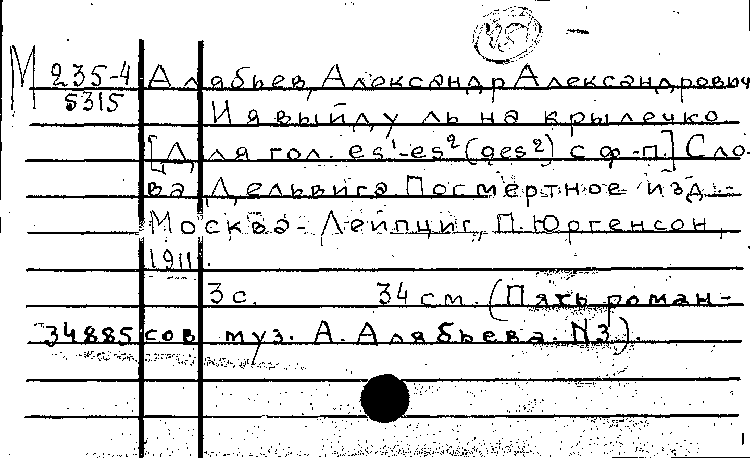 251 —
М 235-4 Алябьев, Александр Александрович
5315 И я выйду ль на крылечко.
[Для гол. es¹-es²(ges²) с ф-п.] Сло-
ва Дельвига Посмертное изд.-
Москва-Лейпциг, П. Юргенсон,
1911.
3 с. 34 см. (Пять роман-
34885 сов муз. А. Алябьева. N3).